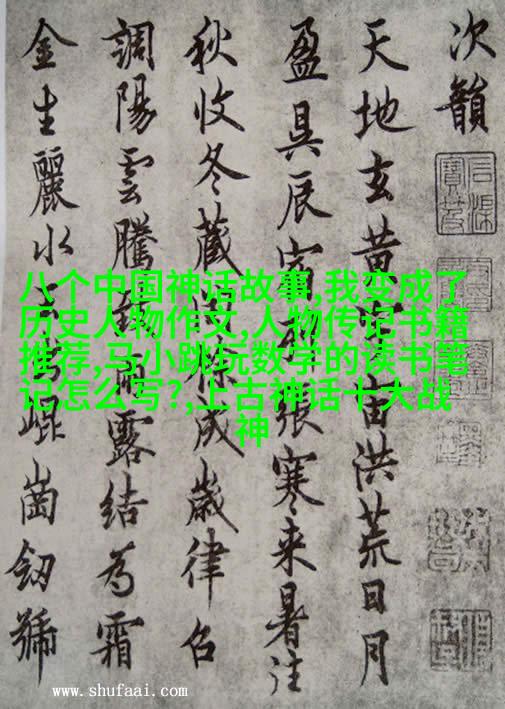 次韻
天地玄黃宇宙洪荒日月
盈昃辰宿列張寒來暑往
秋收冬藏閏餘成歲律召
調陽雲騰致雨露結為霜
金生麗水玉出崑崗劒號
八个中国神话故事,我变成了
历史人物作文,人物传记书籍
推荐,马小跳玩数学的读书笔
记怎么写?,上古神话十大战
神
www.shufaai.com